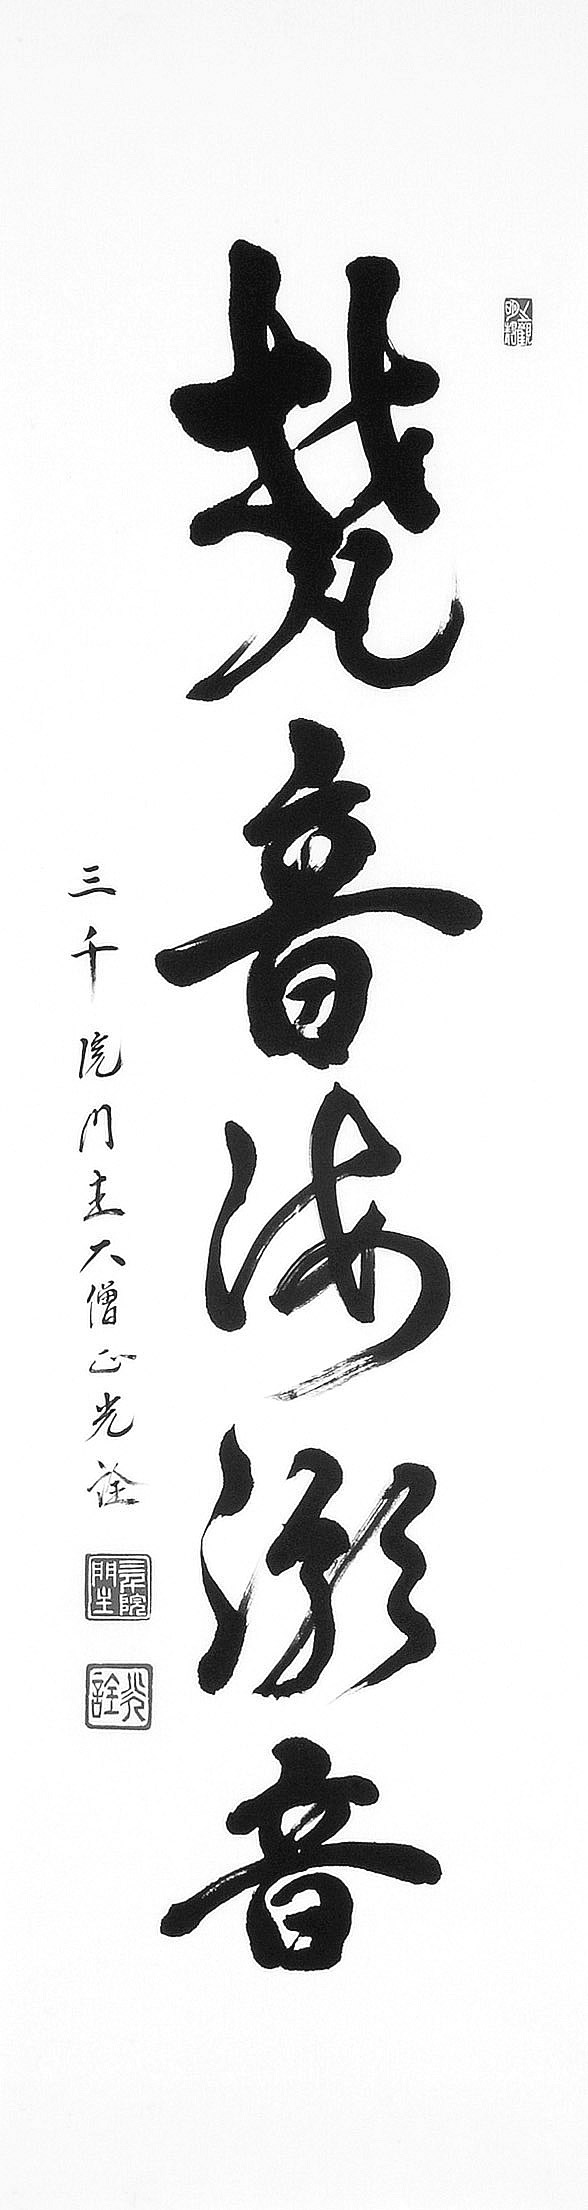 梵音海潮音
三千院門主大僧正光詮
三千院門主
光詮